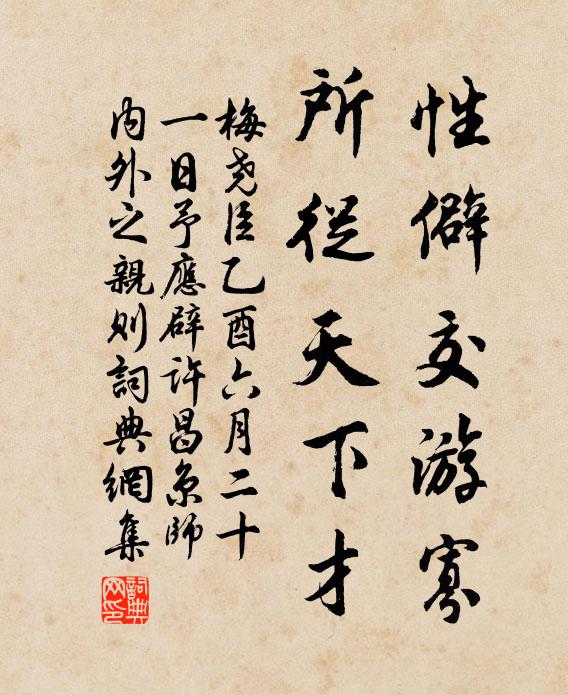 性僻交游寡
所從天下才
梅堯臣乙酉六月二十
一日予應辟許昌京師
內外之親則詞典網集
詞典網印